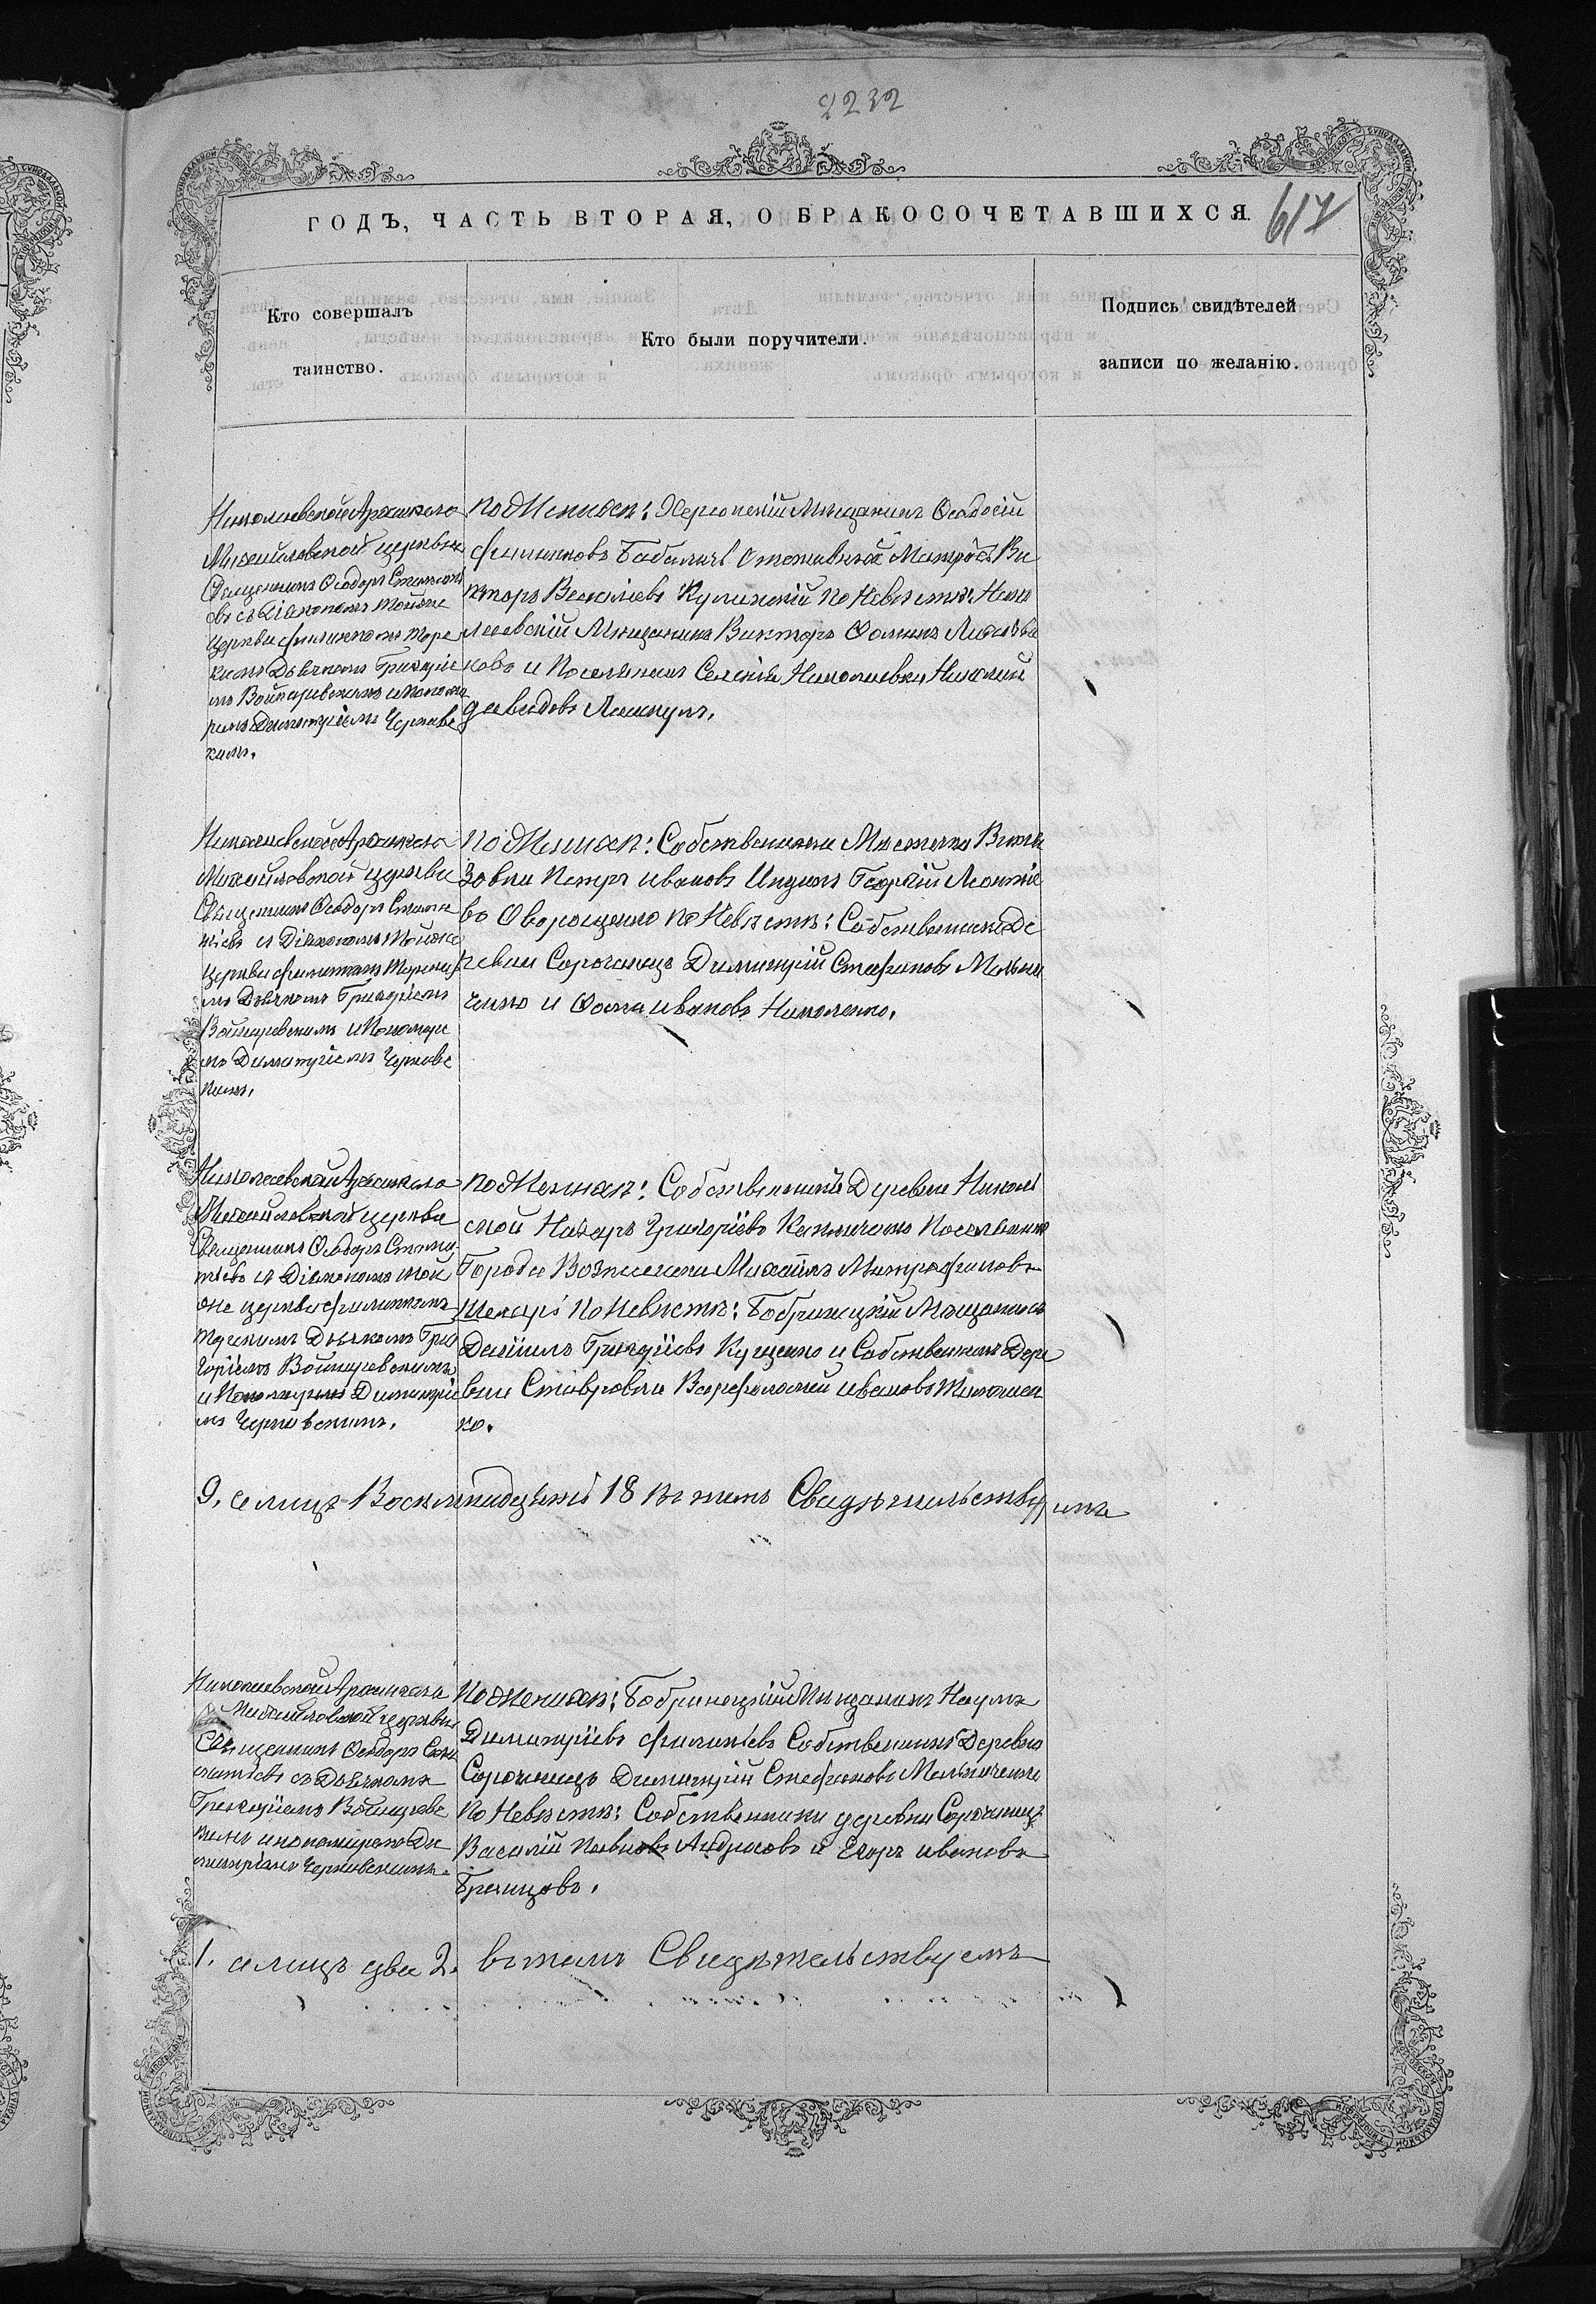 2232
617
ГОДЪ, ЧАСТЬ ВТОРАЯ, О БРАКОСОЧЕТАВШИХСЯ.
Кто совершалъ
таинство.
Кто были поручители.
Подпись свидѣтелей
записи по желанію.
Николаевской Архангело
Михайловской церкви
Священникъ Ѳеодоръ
съ Діакономъ тойже
церкви Филиппомъ Торс
кимъ Дьячкомъ Григоріе
мъ и понома
ремъ Димитріемъ Чернявс
кимъ.
по Женихѣ: Херсонскій Мѣщанинъ Ѳеодосій
Филиповъ отставной Матросъ Ви
кторъ Васильевъ Кулинскій по Невѣстѣ: Нико
лаевскій Мѣщанинъ Викторъ Ѳоминъ
ковъ и Поселянинъ Селенія Николаевки Николай
Давидовъ
Николаевской Архангело
Михайловской церкви
Священникъ Ѳеодоръ
съ Діакономъ Тойже
церкви Филиппомъ Торски
мъ Дьячкомъ Григоріемъ
и Пономаре
мъ Димитріемъ Чернявс
кимъ.
по Женихѣ: Собственники Мѣстечка
Петръ Ивановъ Георгій Леонтіе
въ по Невѣстѣ: Собственники Де
ревни Сорочинецъ Димитрій Стефановъ Мельни
ченко и Ѳома Ивановъ Николенко.
Николаевской Архангело
Михайловской церкви
Священникъ Ѳеодоръ
съ Діакономъ той
же церкви Филиппомъ
Торскимъ Дьячкомъ Гри
горіемъ
и Пономаремъ Димитріе
мъ Чернявскимъ.
по Женихѣ: Собственникъ Деревни Николь
ской Назаръ Григорьевъ Поселянинъ
Города Вознесенска Михаилъ Митрофановъ
по Невѣстѣ: Бобринецкій Мѣщанинъ
Даніилъ Григорьевъ Куценко и Собственникъ Дере
вни Ставровки Варфоломей Ивановъ Тимошен
ко.
9. а лицъ Восемнадцать 18 въ томъ Свидѣтельствуемъ
Николаевской Архангело
Михайловской церкви
Священникъ Ѳеодоръ
съ Дьячкомъ
Григоріемъ
и пономаремъ Ди
митріемъ Чернявскимъ.
по Женихѣ: Бобринецкій Мѣщанинъ Наумъ
Димитріевъ Филиповъ Собственникъ Деревни
Сорочинецъ Димитрій Стефановъ Мельниченко
по Невѣстѣ: Собственники деревни Сорочинецъ
Василій Андрусовъ и Егоръ Ивановъ

1. а лицъ два 2. въ томъ Свидѣтельствуемъ